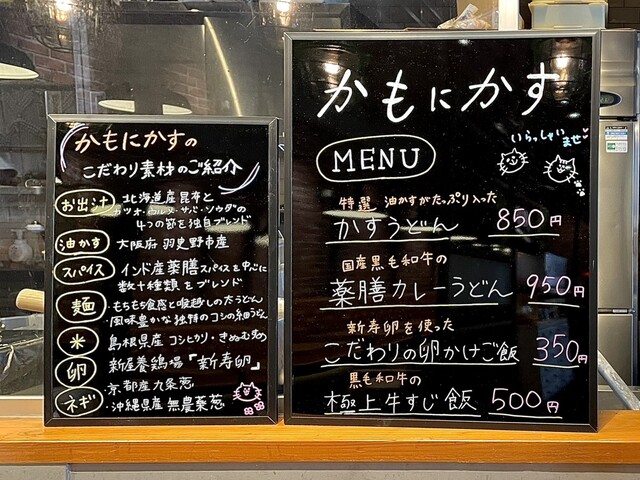 かもにかすの
こだわり素材のご紹介
お出汁 北海道産昆布と
カツオ・ウルメ・サバ・ソウダの
4つの節を独自ブレンド
油かす 大阪府羽曳野市産
スパイス インド産薬膳スパイスを中心に
数十種類をブレンド
麺 ・もちもち食感と喉越しの太うどん
・風味豊かな独特のコシの細うどん
米 島根県産コシヒカリ・きぬむすめ
卵 新屋養鶏場「新寿卵」
ネギ ・京都産九条葱
・沖縄県産無農薬葱
かもにかす
いらっしゃいませ
MENU
特選 油かすがたっぷり入った
かすうどん 850円
国産黒毛和牛の
薬膳カレーうどん 950円
新寿卵を使った
こだわりの卵かけご飯 350円
黒毛和牛の
極上牛すじ飯 500円